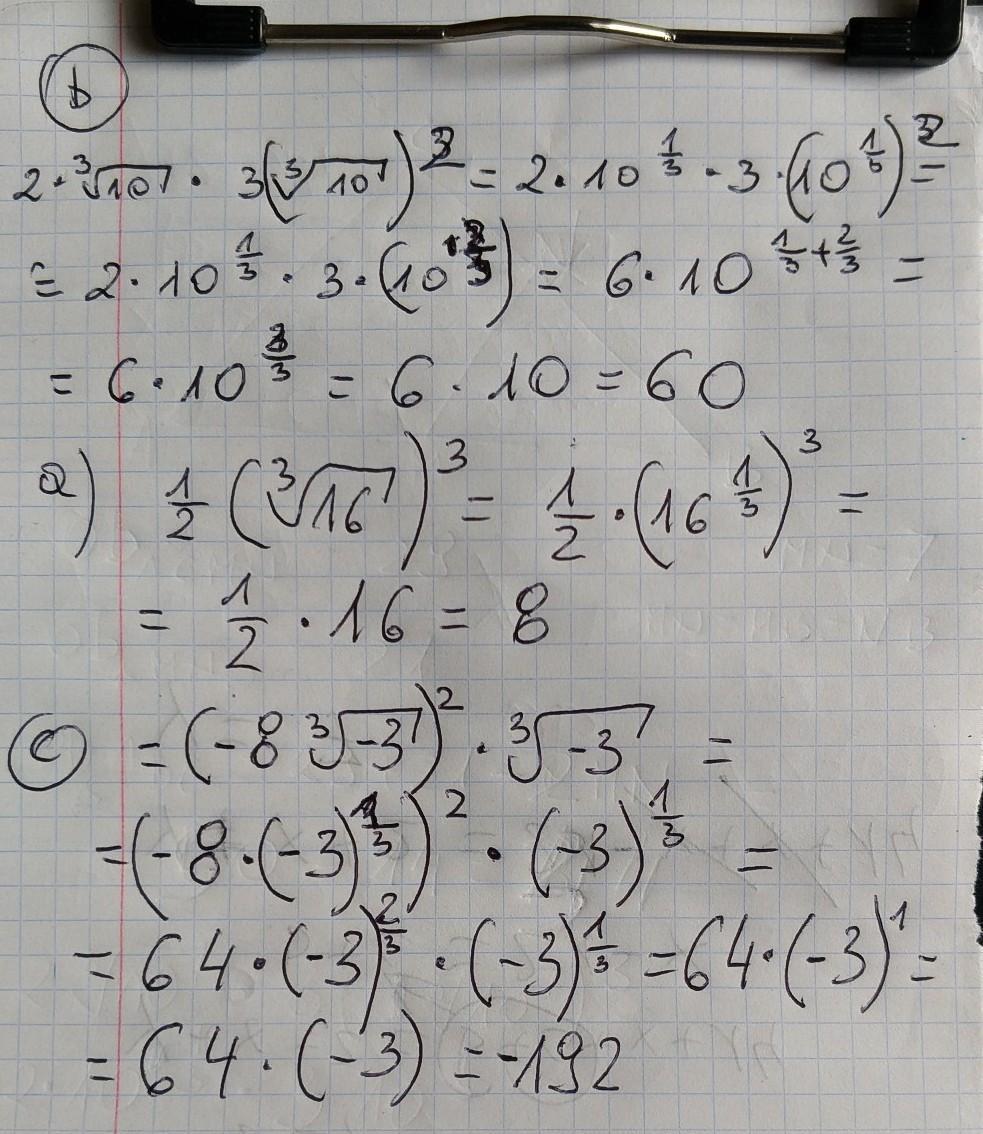 b
2·∛10 · 3(∛10)² = 2·10^(1/3) · 3·(10^(1/3))² =
= 2·10^(1/3) · 3·(10^(2/3)) = 6·10^(1/3+2/3) =
= 6·10^(3/3) = 6·10 = 60
a) 1/2 (∛16)³ = 1/2 · (16^(1/3))³ =
= 1/2 · 16 = 8
c = (-8 ∛-3)² · ∛-3 =
= (-8·(-3)^(1/3))² · (-3)^(1/3) =
= 64·(-3)^(2/3) · (-3)^(1/3) = 64·(-3)¹ =
= 64·(-3) = -192